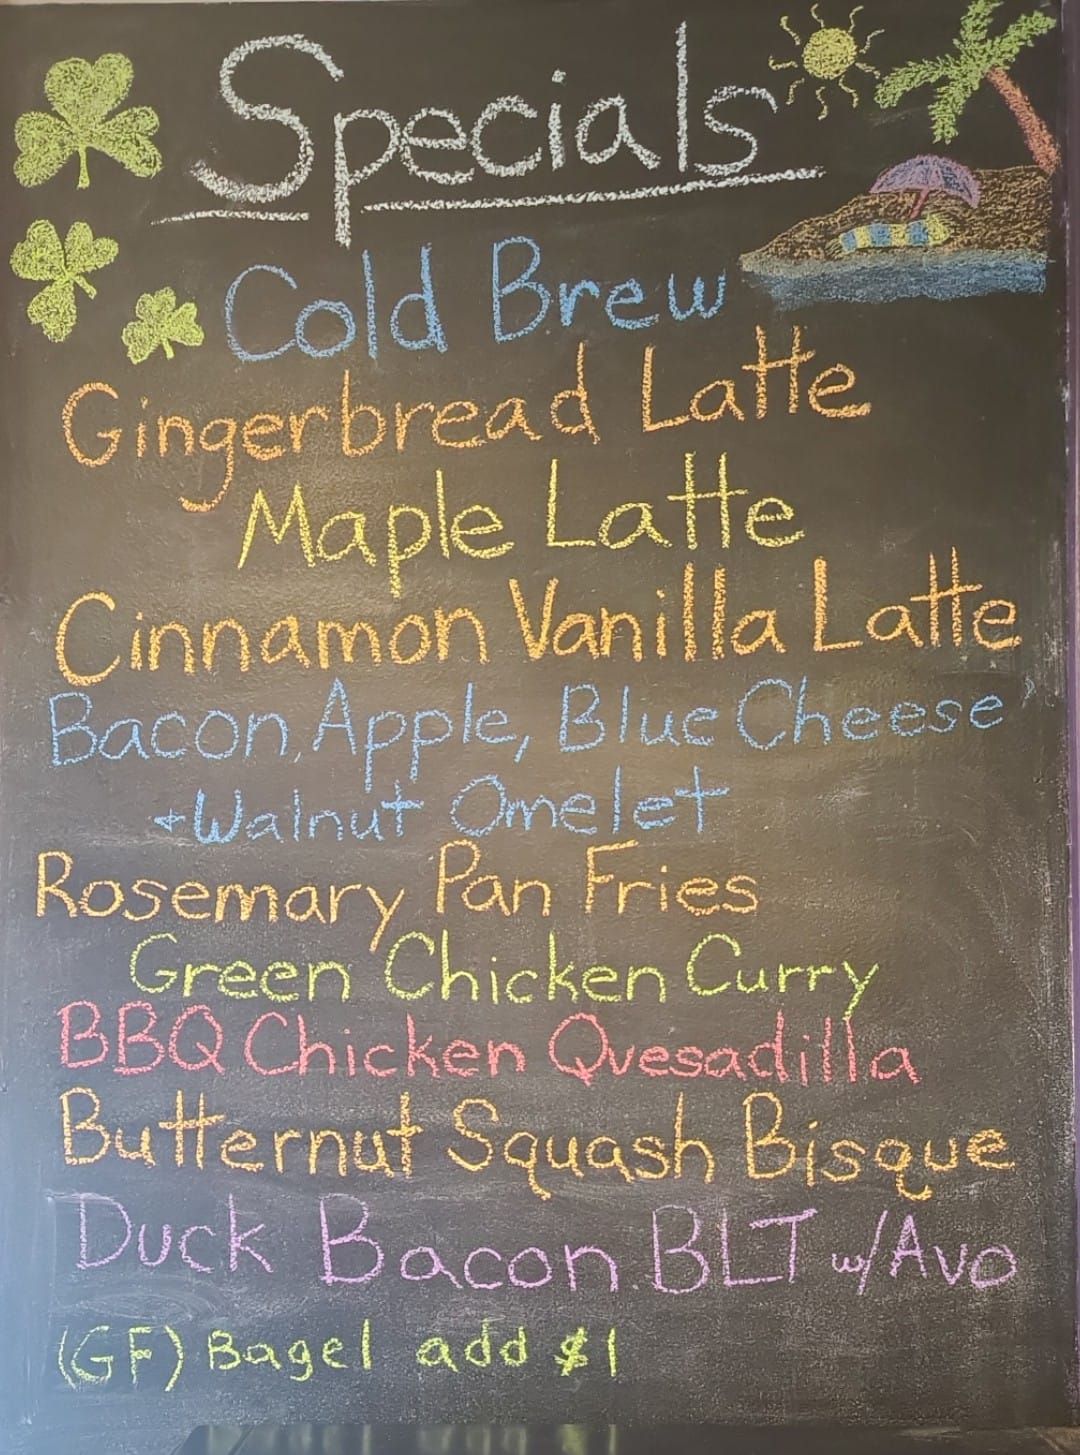 Specials
Cold Brew
Gingerbread Latte
Maple Latte
Cinnamon Vanilla Latte
Bacon, Apple, Blue Cheese
+ Walnut Omelet
Rosemary Pan Fries
Green Chicken Curry
BBQ Chicken Quesadilla
Butternut Squash Bisque
Duck Bacon BLT w/Avo
(GF) Bagel add $1